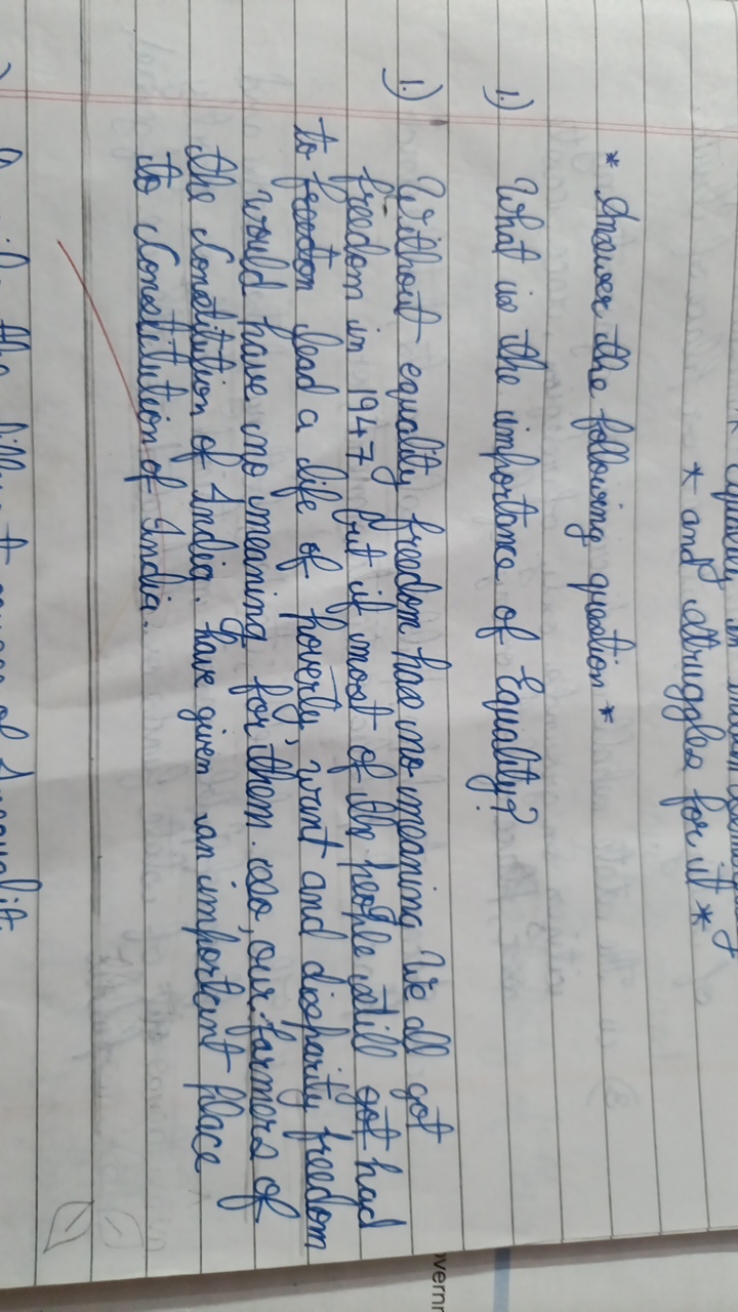 * and struggles for it *
* Answer the following question *
1.) What is the importance of Equality?
1.) Without equality freedom has no meaning. We all got
freedom in 1947 but if most of the people still got had
to freedom lead a life of poverty, want and disparity freedom
would have no meaning for them. also, our farmers of
the Constitution of India. have given an important place
to Constitution of India.